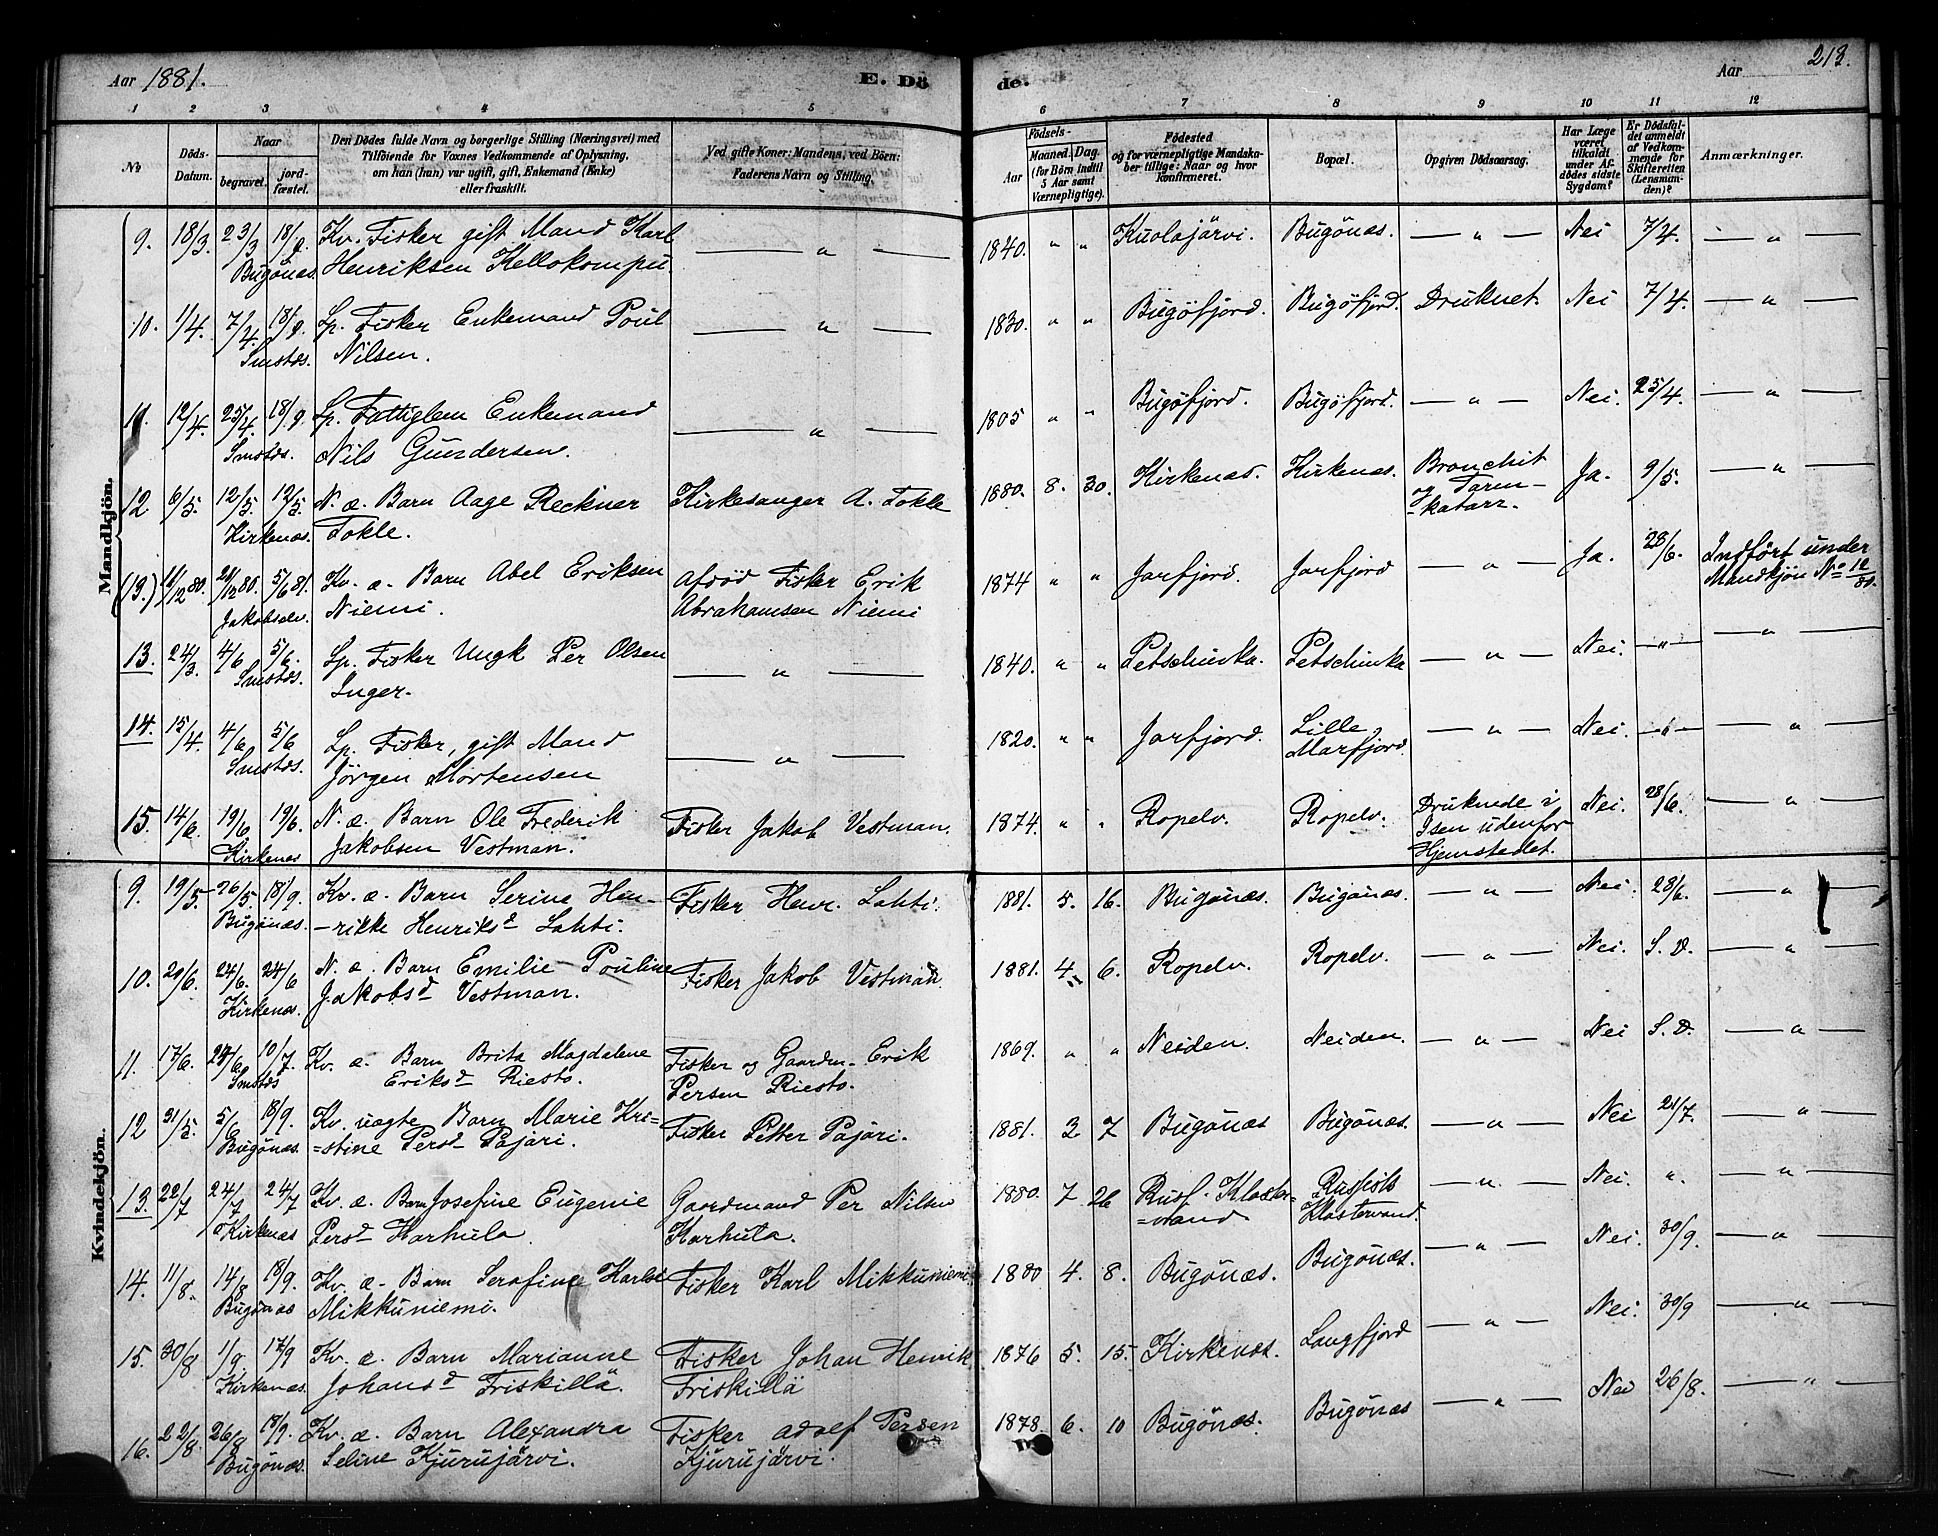 Aar 1881. E. Dö de. Aar 213.
1 2 3 4 5 6 7 8 9 10 11 12
No Döds-Datum. Naar begravet. jordfæstet. Den Dödes fulde Navn og borgerlige Stilling (Næringsvei) med Tilföiende for Voxnes Vedkommende af Oplysning, om han (hun) var ugift, gift, Enkemand (Enke) eller fraskilt. Ved gifte Koner: Mandens, ved Börn: Faderens Navn og Stilling. Födsels- Aar Maaned. Dag. (for Börn indtil 5 Aar samt Værnepligtige). Födested og for værnepligtige Mandskaber tillige: Naar og hvor konfirmeret. Bopæl. Opgiven Dödsaarsag. Har Læge været tilkaldt under Afdödes sidste Sygdom? Er Dödsfaldet anmeldt af Vedkommende for Skifteretten (Lensmanden)? Anmærkninger.
Mandkjön.
9. 18/3. 23/3 18/9 Kv. Fisker gift Mand Karl — " — 1840. " " Kuolajärvi. Bugönæs. — " — Nei 7/4. — " —
Bugönæs. Henriksen Kellokompu
10. 1/4. 7/4. 18/9. Lp. Fisker Enkemand Poul — " — 1830. " " Bugöfjord. Bugöfjord. Druknet. Nei 7/4. — " —
Smstds. Nilsen.
11. 12/4. 25/4. 18/9. Lp. Fattiglem Enkemand — " — 1805 " " Bugöfjord. Bugöfjord. — " — Nei. 25/4. — " —
Smstds. Nils Gundersen.
12. 6/5. 12/5. 12/5. N. æ. Barn Aage Reckner Kirkesanger A. Tokle 1880. 8. 30. Kirkenæs. Kirkenæs. Bronchit og Tarm- Ja. 9/5. — " —
Kirkenæs. Tokle. katarr.
(13.) 11/12 80. 20/12 80. 5/6 81. Kv. æ. Barn Abel Eriksen Afdöd Fisker Erik 1874 " " Jarfjord. Jarfjord — " — Ja. 28/6. Indfört under
Jakobselv. Niemi. Abrahamsen Niemi Mandkjön No 12/80.
13. 24/3. 4/6 5/6. Lp. Fisker Ungk Per Olsen — " — 1840. " " Petschinka. Petschinka — " — Nei. — " — — " —
Smstds. Inger.
14. 15/4. 4/6 5/6 Lp. Fisker, gift Mand — " — 1820. " " Jarfjord. Lille — " — Nei. — " — — " —
Smstds. Jörgen Mortensen Marfjord.
15. 14/6. 19/6. 19/6. N. æ. Barn Ole Frederik Fisker Jakob Vestman. 1874. " " Ropelv. Ropelv. Druknede i Nei. 28/6. — " —
Kirkenes Jakobsen Vestman. Isen udenfor
Hjemstedet.
Kvindekjön.
9. 19/5. 26/5. 18/9. Kv. æ. Barn Serine Hen- Fisker Henr. Lahti. 1881. 5. 16. Bugönæs. Bugönæs. — " — Nei. 28/6. — " —
Bugönæs. -rikke Henriksd Lahti.
10. 20/6. 24/6. 24/6 N. æ. Barn Emilie Pouline Fisker Jakob Vestman. 1881. 4. 6. Ropelv. Ropelv. — " — Nei. S. D. — " —
Kirkenæs. Jakobsd Vestman.
11. 17/6. 24/6 10/7. Kv. æ. Barn Brita Magdalene Fisker og Gaardm. Erik 1869. " " Neiden. Neiden. — " — Nei S. D. — " —
Smstds Eriksd Riesto. Persen Riesto.
12 31/5. 5/6 18/9. Kv. uægte Barn Marie Kri- Fisker Petter Pajari. 1881. 3 7 Bugönæs Bugönæs. — " — Nei 21/7. — " —
Bugönæs. =stine Persd Pajari.
13. 22/7 24/7 24/7 Kv. æ. Barn Josefine Eugenie Gaardmand Per Nilsen 1880. 7 26 Russ. Kloster- Russisk — " — Nei. " — " —
Kirkenæs Persd Karhula. Karhula. =vand Klostervand.
14. 11/8. 14/8 18/9. Kv. æ. Barn Serafine Karlsd Fisker Karl Mikkuniemi 1880 4. 8. Bugönæs. Bugönæs. — " — Nei. 30/9. — " —
Bugönæs Mikkuniemi.
15. 30/8 1/9. 17/9 Kv. æ. Barn Marianne Fisker Johan Henrik 1876 5. 15. Kirkenæs. Langfjord — " — Nei. 30/9 — " —
Kirkenæs. Johansd Friskillä. Friskillä
16. 22/8. 26/8 18/9. Kv. æ. Barn Alexandra Fisker Adolf Persen 1878. 6. 10 Bugönæs. Bugönæs — " — Nei 26/8. — " —
Bugönæs. Seline Kjurujärvi. Kjurujärvi.